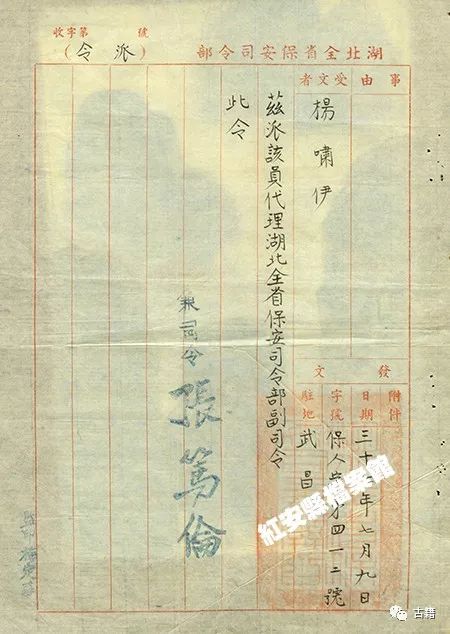 湖北全省保安司令部
收字第 號
(派令)
事由
受文者
楊嘯伊
發文
附件
日期 三十年七月九日
字號 保人第四一二號
駐地 武昌
茲派該員代理湖北全省保安司令部副司令
此令
兼司令 張篤倫
紅安縣檔案館
古籍